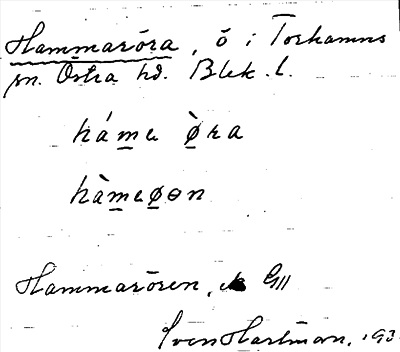 Hammaröra, ö i Torhamns
sn. Östra hd. Blek. l.
háme øra
hàmeøen
Hammarören, GII
Sven Hartman, 193